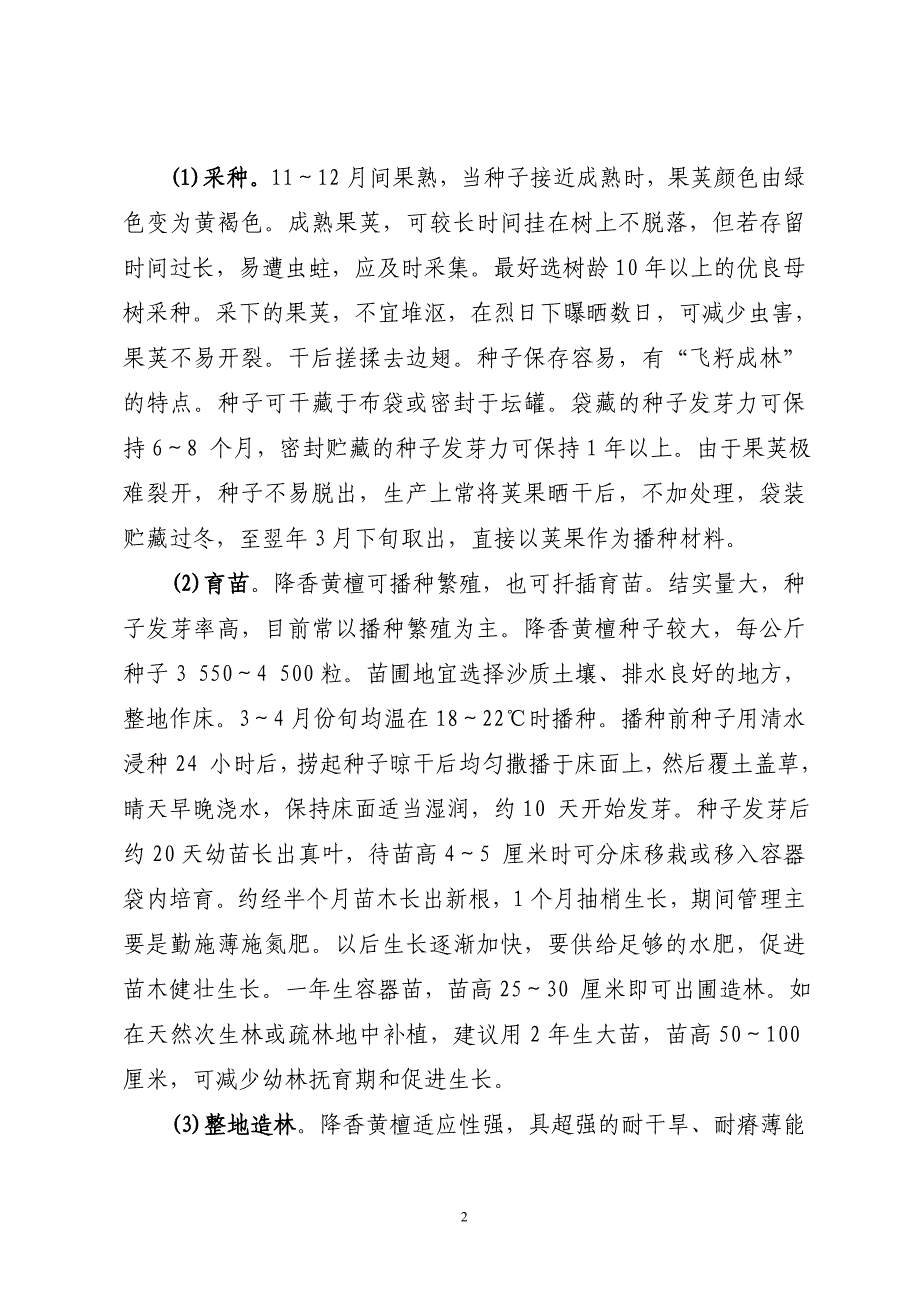 (1)采种。11～12月间果熟，当种子接近成熟时，果荚颜色由绿
色变为黄褐色。成熟果荚，可较长时间挂在树上不脱落，但若存留
时间过长，易遭虫蛀，应及时采集。最好选树龄10年以上的优良母
树采种。采下的果荚，不宜堆沤，在烈日下曝晒数日，可减少虫害，
果荚不易开裂。干后搓揉去边翅。种子保存容易，有“飞籽成林”
的特点。种子可干藏于布袋或密封于坛罐。袋藏的种子发芽力可保
持6～8 个月，密封贮藏的种子发芽力可保持1年以上。由于果荚极
难裂开，种子不易脱出，生产上常将荚果晒干后，不加处理，袋装
贮藏过冬，至翌年3月下旬取出，直接以荚果作为播种材料。
(2)育苗。降香黄檀可播种繁殖，也可扦插育苗。结实量大，种
子发芽率高，目前常以播种繁殖为主。降香黄檀种子较大，每公斤
种子3 550～4 500粒。苗圃地宜选择沙质土壤、排水良好的地方，
整地作床。3～4月份旬均温在18～22℃时播种。播种前种子用清水
浸种24 小时后，捞起种子晾干后均匀撒播于床面上，然后覆土盖草，
晴天早晚浇水，保持床面适当湿润，约10 天开始发芽。种子发芽后
约20天幼苗长出真叶，待苗高4～5 厘米时可分床移栽或移入容器
袋内培育。约经半个月苗木长出新根，1个月抽梢生长，期间管理主
要是勤施薄施氮肥。以后生长逐渐加快，要供给足够的水肥，促进
苗木健壮生长。一年生容器苗，苗高25～30 厘米即可出圃造林。如
在天然次生林或疏林地中补植，建议用2年生大苗，苗高50～100
厘米，可减少幼林抚育期和促进生长。
(3)整地造林。降香黄檀适应性强，具超强的耐干旱、耐瘠薄能
2